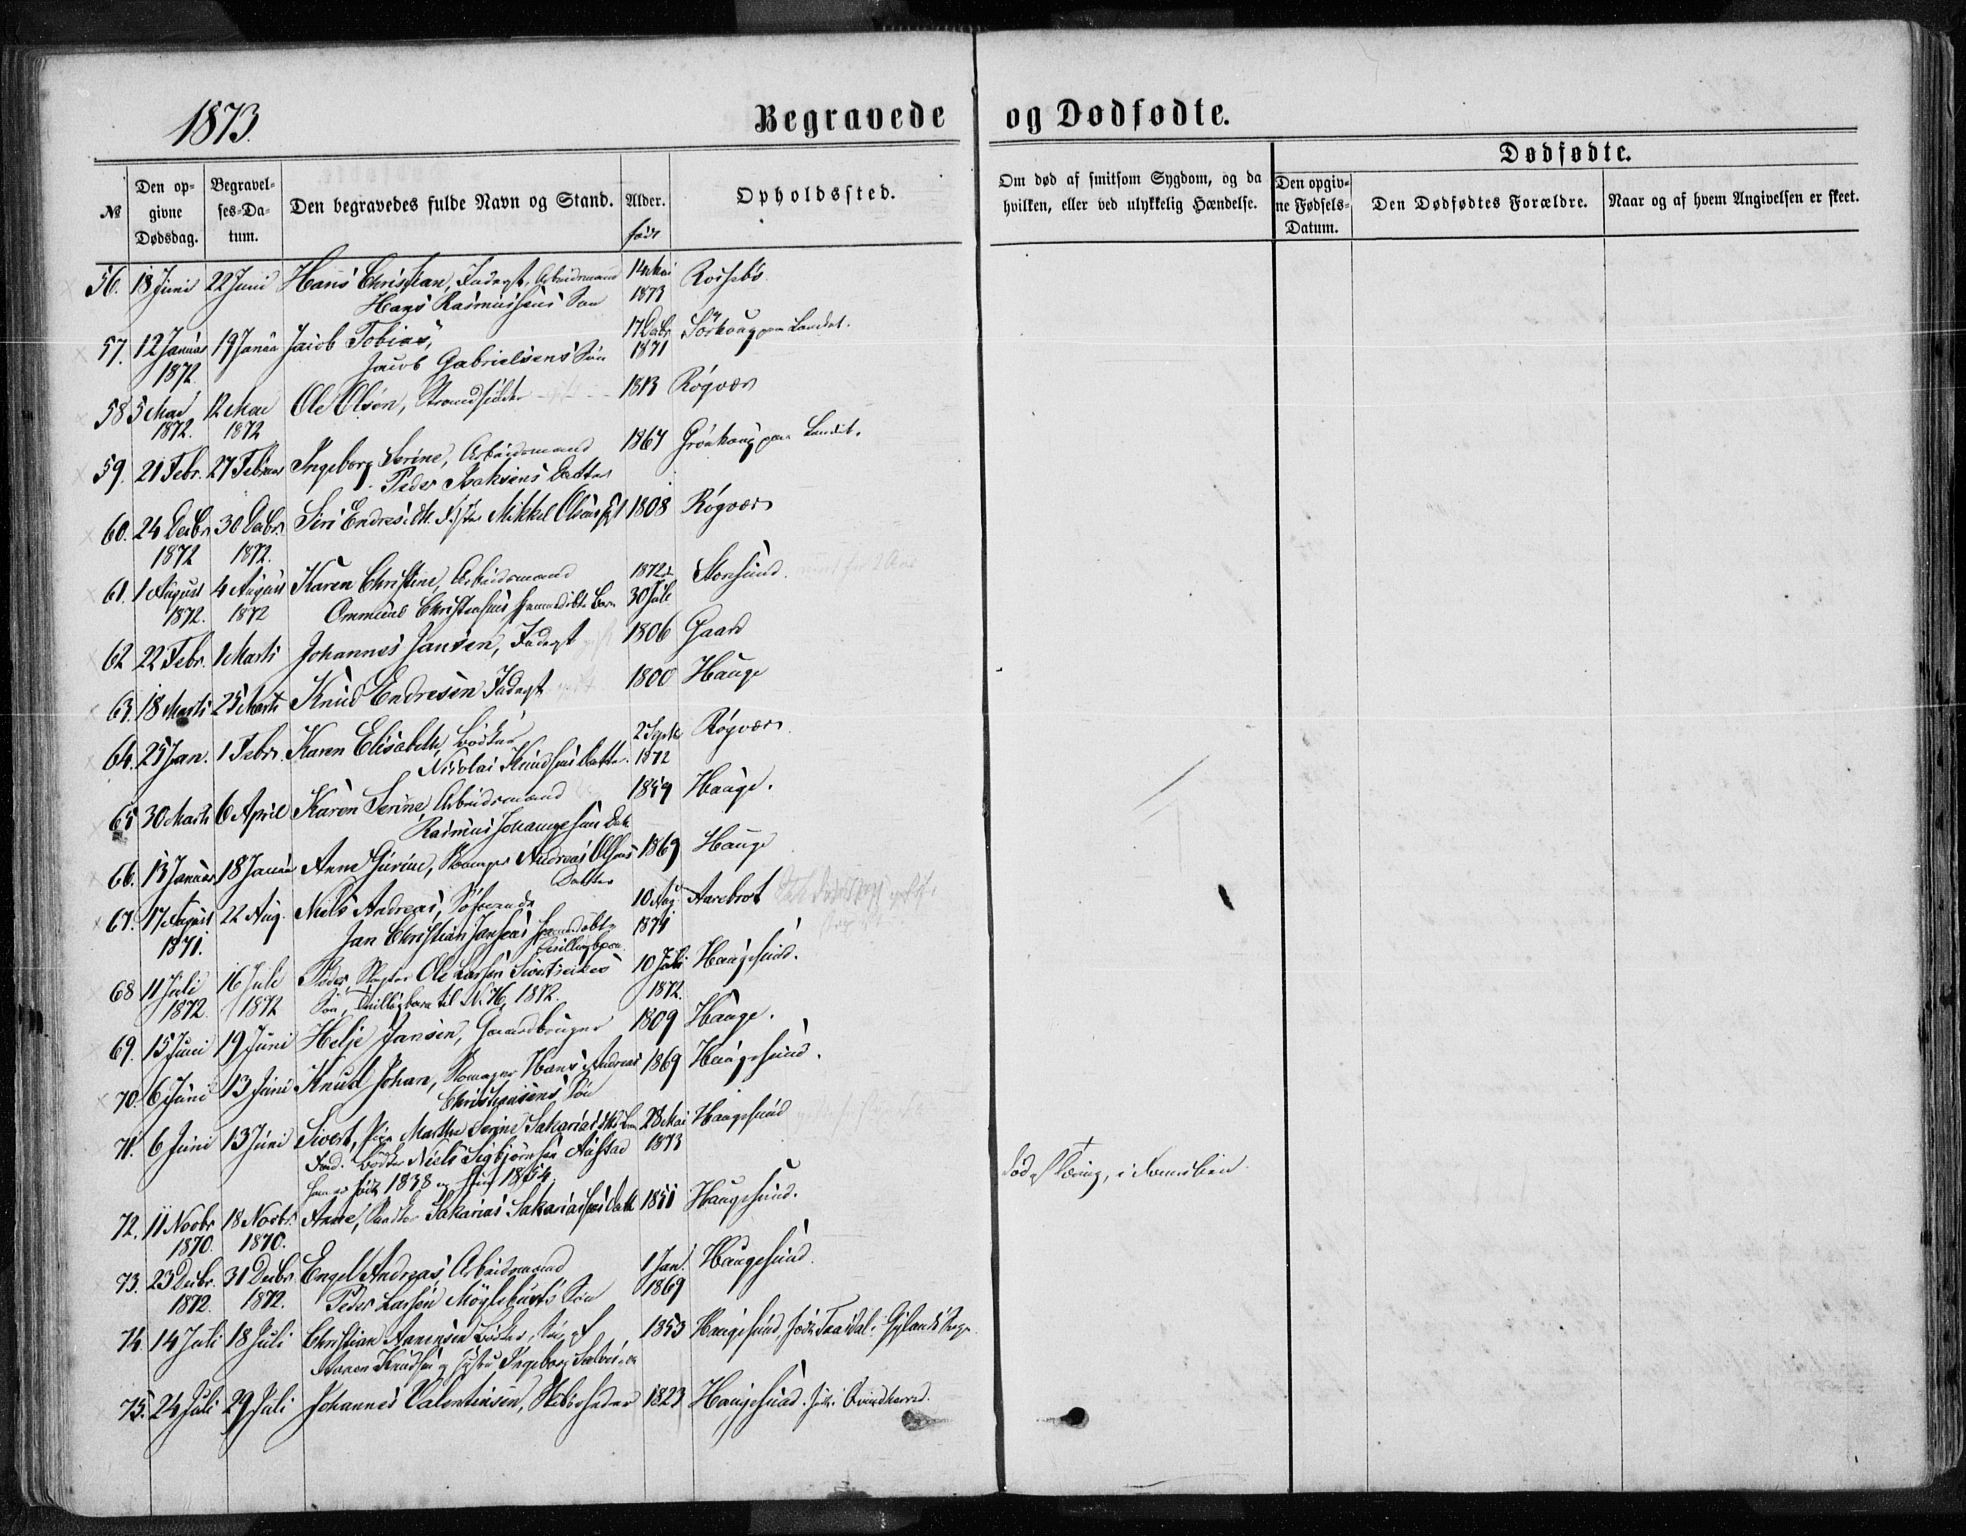 1873.
Begravede og Dødfødte.
№
Den opgivne Dødsdag.
Begravelses-Datum.
Den begravedes fulde Navn og Stand.
Alder.
født
Opholdssted.
Om død af smitsom Sygdom, og da hvilken, eller ved ulykkelig Hændelse.
Dødfødte.
Den opgivne Fødsels-Datum.
Den Dødfødtes Forældre.
Naar og af hvem Angivelsen er skeet.
56. 18 Juni 22 Juni Hans Christian, Arbeidsmand 14 Mai
Hans Rasmussens Søn 1873
57. 12 Januar 19 Januar Jacob Tobias, 17 Decbr Sörhaug paa Landet.
1872. Jacob Gabrielsens Søn 1871
58 5 Mai 12 Mai Ole Olsen, Strandsidder 1813 Røgvær
1872. 1872
59. 21 Febr. 27 Februar Ingeborg Serine, Arbeidsmand 1867 Grönhaug paa Landet.
Peder Isaksens Datter
60. 24 Decbr 30 Decbr. Siri Endresdtr. Mikkel Olsens 1808 Røgvær
1872 1872.
61. 1 August 4 August Karen Christine, Arbeidsmand 1872 Storesund.
1872. 1872 Christensens hjemmedöbte Barn 30 Juli
62 22 Febr. 1 Marts Johannes Jansen, 1806 Gaard
63. 18 Marts 25 Marts Knud Endresen 1800 Hauge
64. 25 Jan. 1 Febr. Karen Elisabeth, Bødker 2 Septr Røgvær.
Nicolai Knudsens Datter. 1872
65 30 Marts 6 April Karen Serine, Arbeidsmand 1859 Hauge.
Rasmus Johannessens Datt.
66. 13 Januar 18 Januar Anne Gurine, Skomager Andreas Olsens 1869 Hauge
Datter
67. 17 August 22 Aug. Niels Andreas, Söfmands 10 Aug Aarebrot
1871. Jan Christian Jansens hjemmedöbte 1871
Tvillingbarn
68 11 Juli 16 Juli Peder, Slagter Ole Larsen 10 Juli Haugesund.
1872. 1872 Søn, Tvillingbarn til N. 76, 1872. 1872.
69. 15 Juni 19 Juni Helje Jansen, Gaardbruger 1809 Hauge.
70. 6 Juni 13 Juni Knud Johan, Skomager Hans Andreas 1869 Haugesund.
Christensens Søn
71. 6 Juni 13 Juni Sivert, Pige Marthe Serine Sakariasdtrs Barn 28 Mai Haugesund
Bødker Niels Sigbjørnsen 1873
han er født 1838 og hun 1854.
Død af Tæring, i Familien.
72. 11 Novbr 18 Novbr. Anne, Sakarias Sakariassens Datt. 1851 Haugesund.
1870. 1870.
73. 23 Decbr. 31 Decbr. Engel Andreas, Arbeidsmand 1 Jan. Haugesund.
1872. 1872. Peder Larsen Søn 1869
74. 14 Juli 18 Juli Christian Aanensen Bødker, Søn af 1853 Haugesund, født i Gylands Sogn
Aanen Knudsen og Hustru Ingeborg
75. 24 Juli 29 Juli Johannes Valentinsen, Skibsreder 1823 Haugesund. født i Qvindherred.